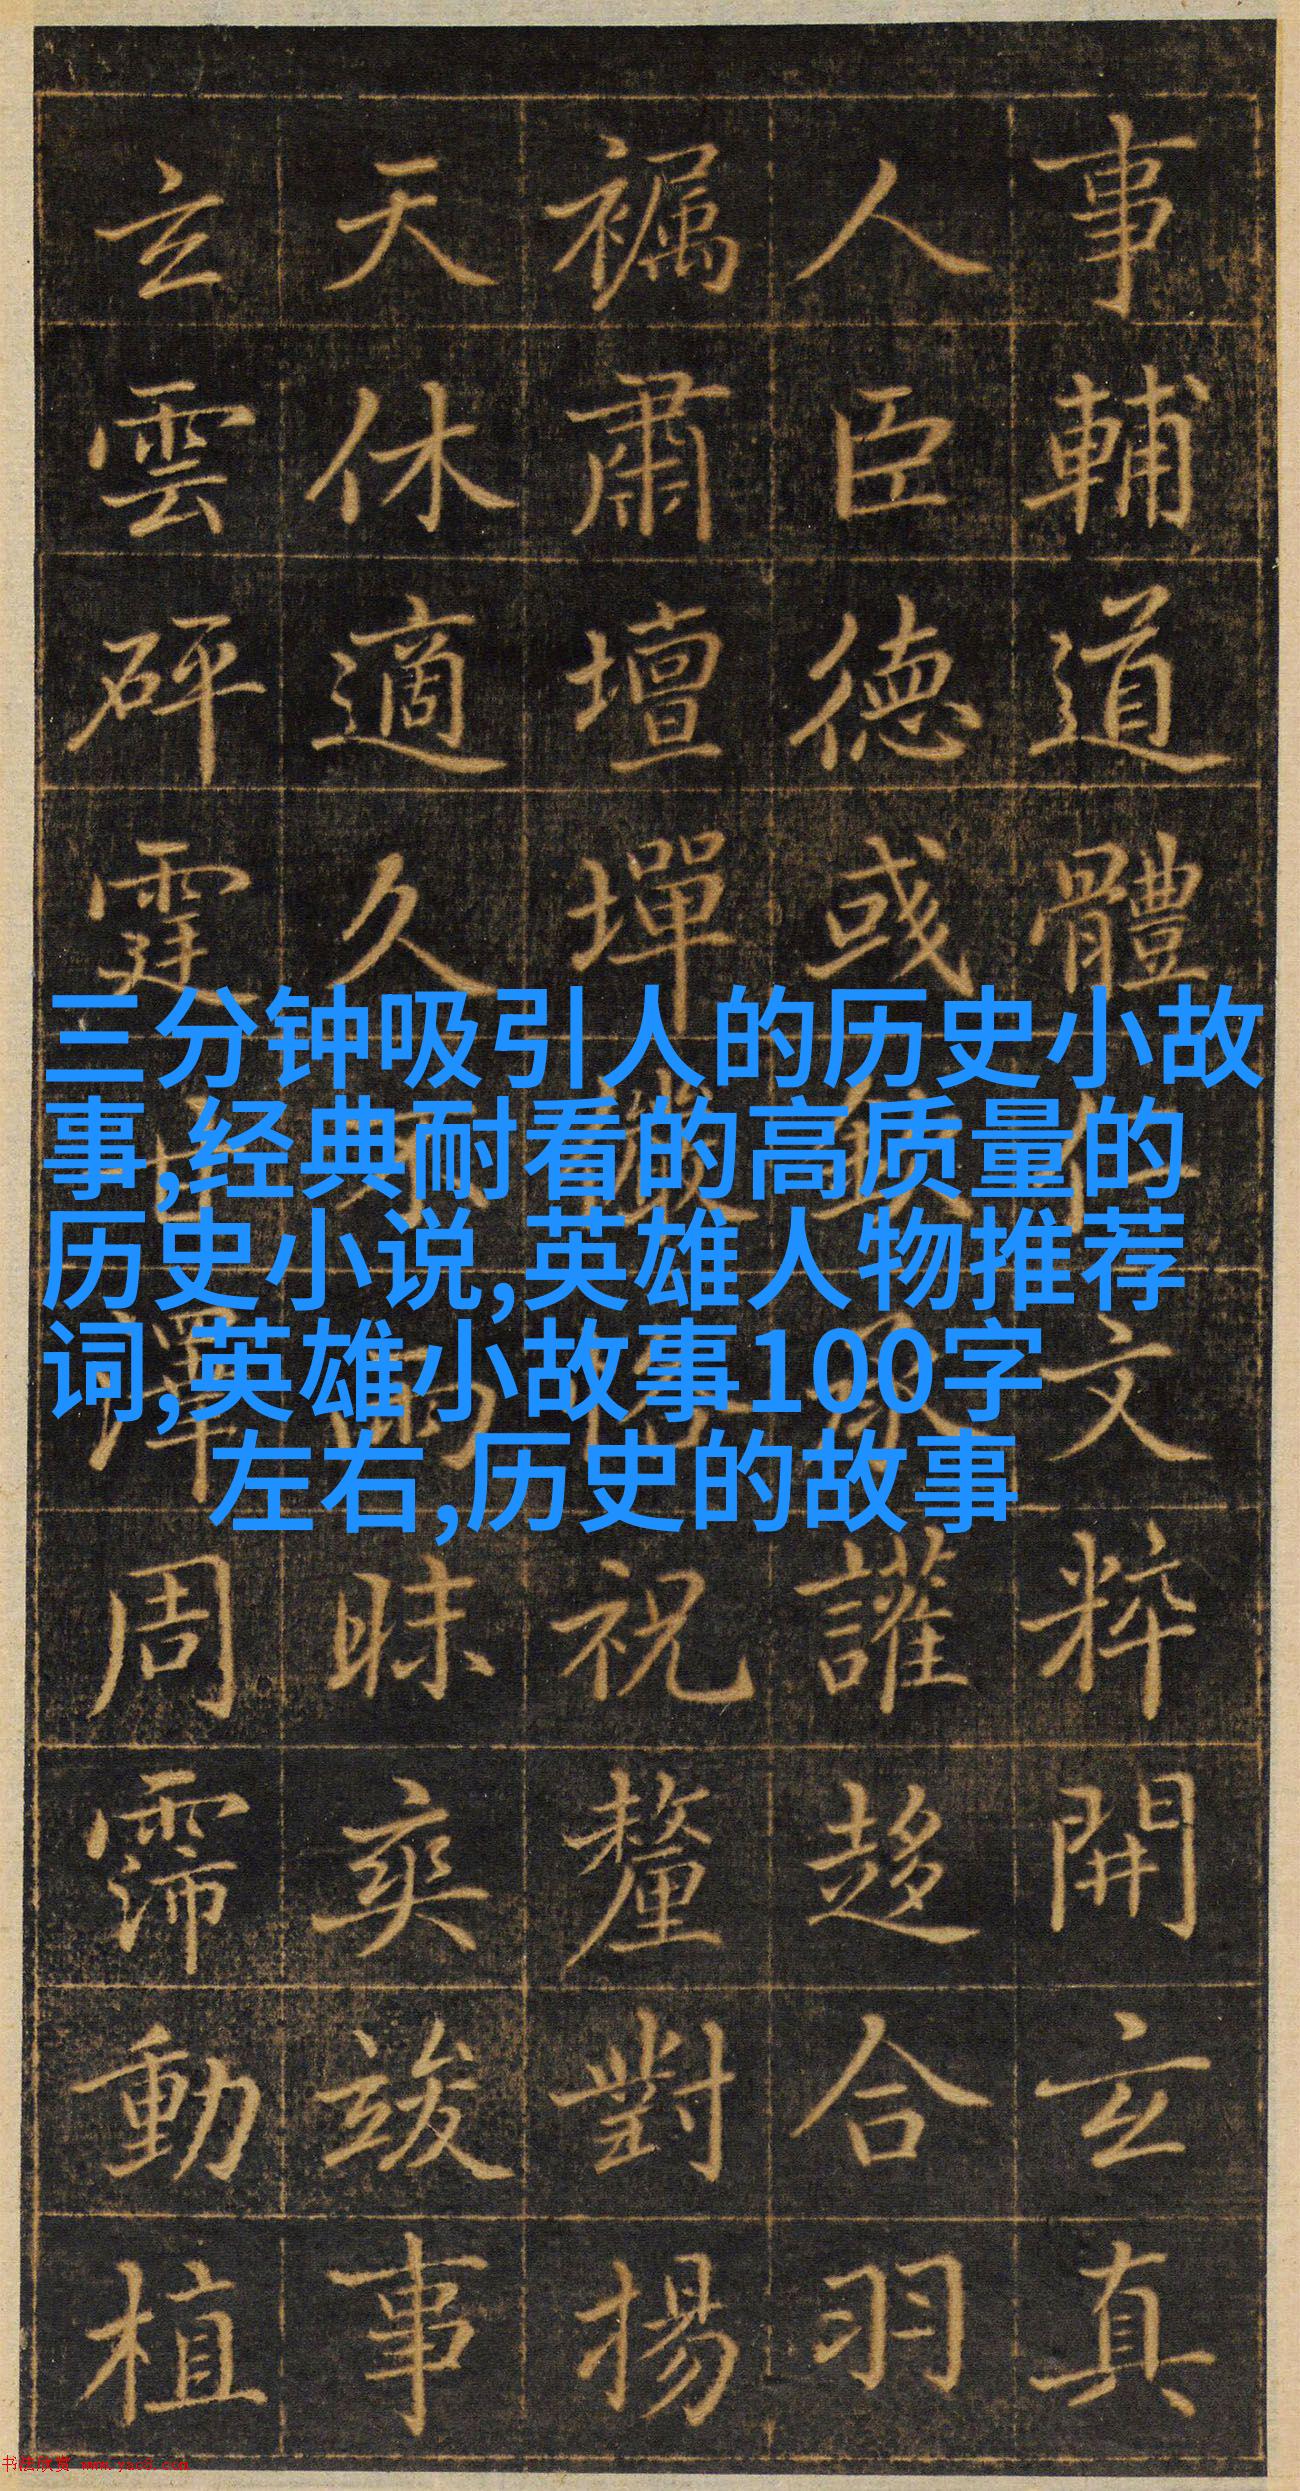 事輔道體文粹開玄真
人臣德或讙趍合羽
肅壇墠祝釐對揚
天休適久雨昧爽竣事
玄雲砰霆澤周霈動植
三分钟吸引人的历史小故
事,经典耐看的高质量的
历史小说,英雄人物推荐
词,英雄小故事100字
左右,历史的故事
书法欣赏 www.yac8.com